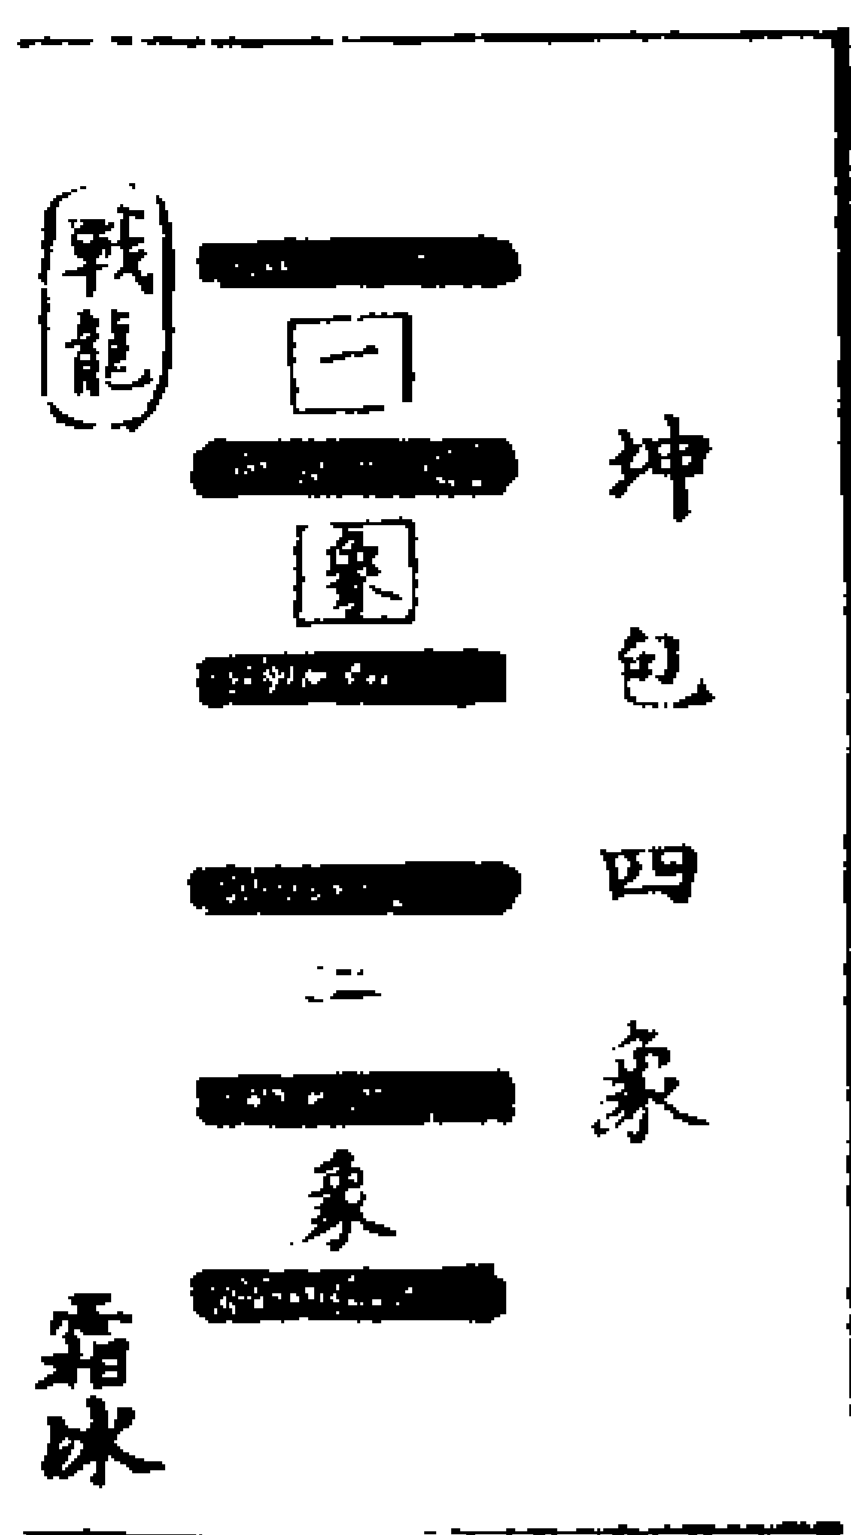 坤包四象
一象
二象
戰龍
霜冰